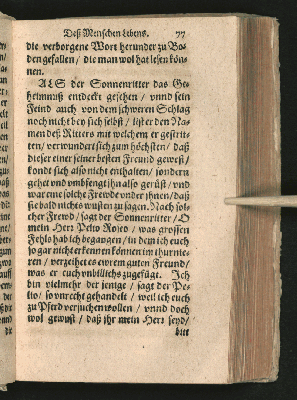 Deß Menschen Lebens. 77
die verborgene Wort herunder zu Bo-
den gefallen / die man wol hat lesen kön-
nen.
ALS der Sonnenritter das Ge-
heimnuß entdeckt gesehen / vnnd sein
Feind auch von dem schweren Schlag
noch nicht bey sich selbst / list er den Na-
men deß Ritters mit welchem er gestrit-
ten / verwundert sich zum höchsten / daß
dieser einer seiner besten Freund gewest /
kondt sich also nicht enthalten / sondern
gehet vnd vmbfengt jhn also gerüst / vnd
war eine solche Frewde vnder jhnen / daß
sie bald nichts wusten zu sagen. Nach sol-
cher Frewd / sagt der Sonnenritter / O
mein Herr Petro Roseo / was grossen
Fehls hab ich begangen / in dem ich euch
so gar nicht erkennen können im thurnie-
ren / verzeihet es ewrem guten Freund /
was er euch vnbillichs zugefügt. Ich
bin vielmehr der jenige / sagt der Pe-
tro / so vnrecht gehandelt / weil ich euch
zu Pferd versuchen wollen / vnnd doch
wol gewust / daß jhr mein Herr seyd /
bitt